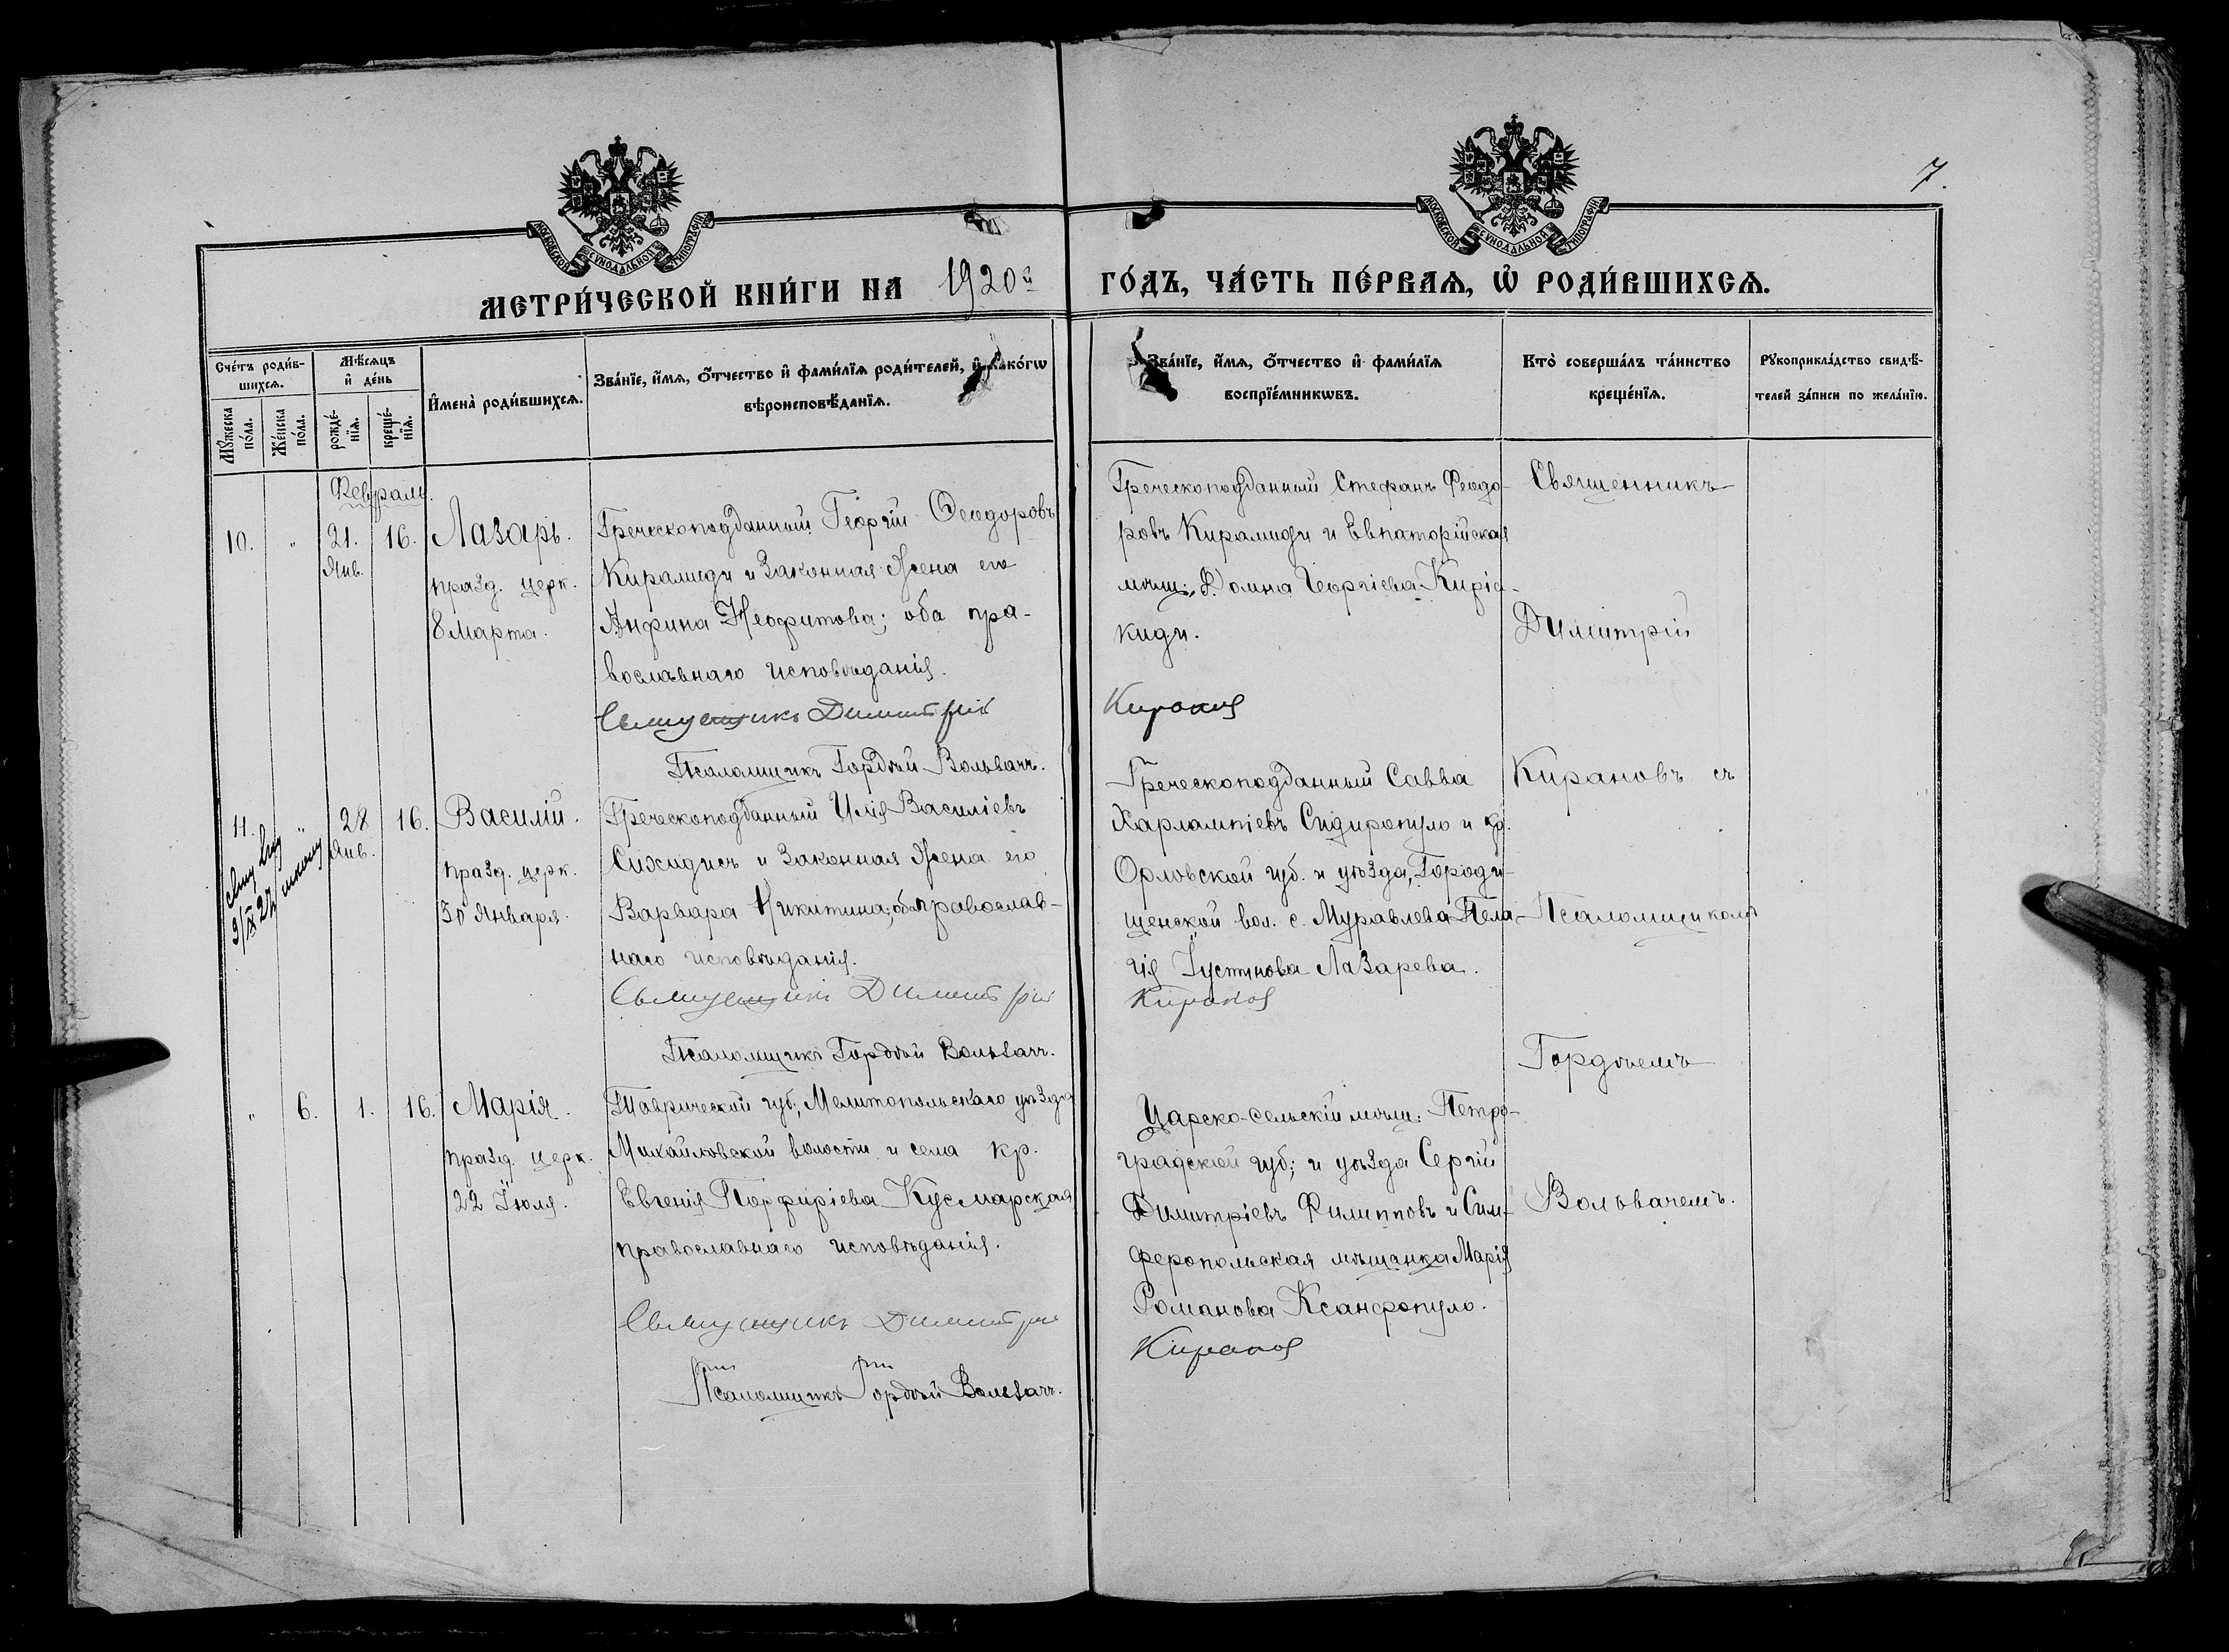 7.
МОСКОВСКОЙ СУНОДАЛЬНОЙ ТИПОГРАФІИ
МОСКОВСКОЙ СУНОДАЛЬНОЙ ТИПОГРАФІИ
МЕТРИ́ЧЕСКОЙ КНИ́ГИ НА 1920й ГО́ДЪ, ЧА́СТЬ ПЕ́РВАЯ, Ѡ РОДИ́ВШИХСЯ.
Сче́тъ роди́в-
шихся.
Му́жеска по́ла.
Же́нска по́ла.
Мѣ́сяцъ
и де́нь
рожде́-
нїя.
креще́-
нїя.
Имена̀ роди́вшихся.
Зва́нїе, и́мя, о́тчество и фами́лїя роди́телей, и како́гѡ
вѣроисповѣ́данїя.
Зва́нїе, и́мя, о́тчество и фами́лїя
воспрїе́мникѡвъ.
Кто̀ соверша́лъ та́инство
креще́нїя.
Рукоприкла́дство свидѣ́-
телей за́писи по жела́нїю.
Февраль.
10. " 21. 16. Лазарь.
Янв.
празд. церк.
8 Марта.
Греческоподданный Георгій Ѳеодоровъ
Кирамиди и Законная Жена его
Анфина Неофитова; оба пра-
вославнаго исповѣданія.
Димитрій
Псаломщикъ Гордѣй Вольвачъ.
Греческоподданный Стефанъ Феодо-
ровъ Кирамиди и Евпаторійская
мѣщ. Домна Георгіева Киріа-
киди.
Киранов
Священникъ
Димитрій
Кирановъ съ
Псаломщикомъ
Гордѣемъ
Вольвачемъ.
11. " 28 16. Василій.
Янв.
празд. церк.
30 Января.
Греческоподданный Илія Василіевъ
Сихидисъ и Законная Жена его
Варвара Никитина; оба православ-
наго исповѣданія.
Димитрій
Псаломщикъ Гордѣй Вольвачъ.
Греческоподданный Савва
Харлампіевъ Сидиропуло и кр.
Орловской губ. и уѣзда, Городи-
щенской вол. с. Муравлева Пела-
гія Іустинова Лазарева.
Киранов
" 6. 1. 16. Марія.
празд. церк.
22 Іюля.
Таврической губ., Мелитопольскаго уѣзда
Михайловской волости и села кр.
Евгенія Порфиріева Кусмарская
православнаго исповѣданія.
Димитрій
Псаломщикъ Гордѣй Вольвачъ.
Царско-сельскій мѣщ. Петро-
градской губ; и уѣзда Сергій
Димитріевъ Филипповъ и Сим-
феропольская мѣщанка Марія
Романова Ксанфопуло.
Киранов